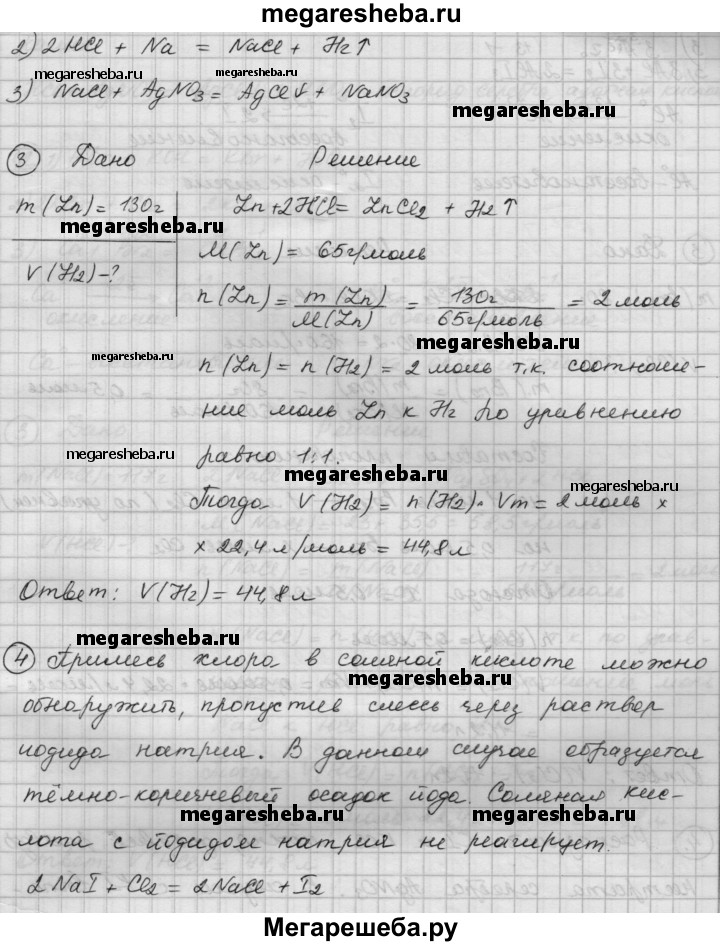 megaresheba.ru
2) 2HCl + Na = NaCl + H2↑
megaresheba.ru megaresheba.ru
3) NaCl + AgNO3 = AgCl↓ + NaNO3
3 Дано Решение
m(Zn) = 130г Zn + 2HCl = ZnCl2 + H2↑
megaresheba.ru
V(H2) - ? M(Zn) = 65г/моль
n(Zn) = m(Zn) / M(Zn) = 130г / 65г/моль = 2 моль
megaresheba.ru
megaresheba.ru n(Zn) = n(H2) = 2 моль т.к. соотноше-
ние моль Zn к H2 по уравнению
megaresheba.ru равно 1:1.
megaresheba.ru
Тогда V(H2) = n(H2) · Vm = 2 моль ×
× 22,4 л/моль = 44,8 л
Ответ: V(H2) = 44,8 л
megaresheba.ru
4 Примесь хлора в соляной кислоте можно
megaresheba.ru
обнаружить, пропустив смесь через раствор
иодида натрия. В данном случае образуется
тёмно-коричневый осадок йода. Соляная кис-
megaresheba.ru megaresheba.ru
лота с йодидом натрия не реагирует.
2NaI + Cl2 = 2NaCl + I2
megaresheba.ru
Мегарешеба.ру